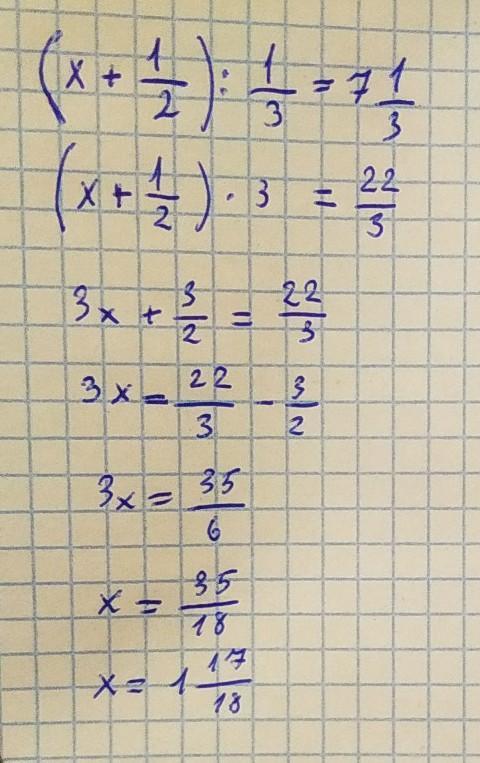 (x + 1/2) : 1/3 = 7 1/3
(x + 1/2) · 3 = 22/3
3x + 3/2 = 22/3
3x = 22/3 - 3/2
3x = 35/6
x = 35/18
x = 1 17/18